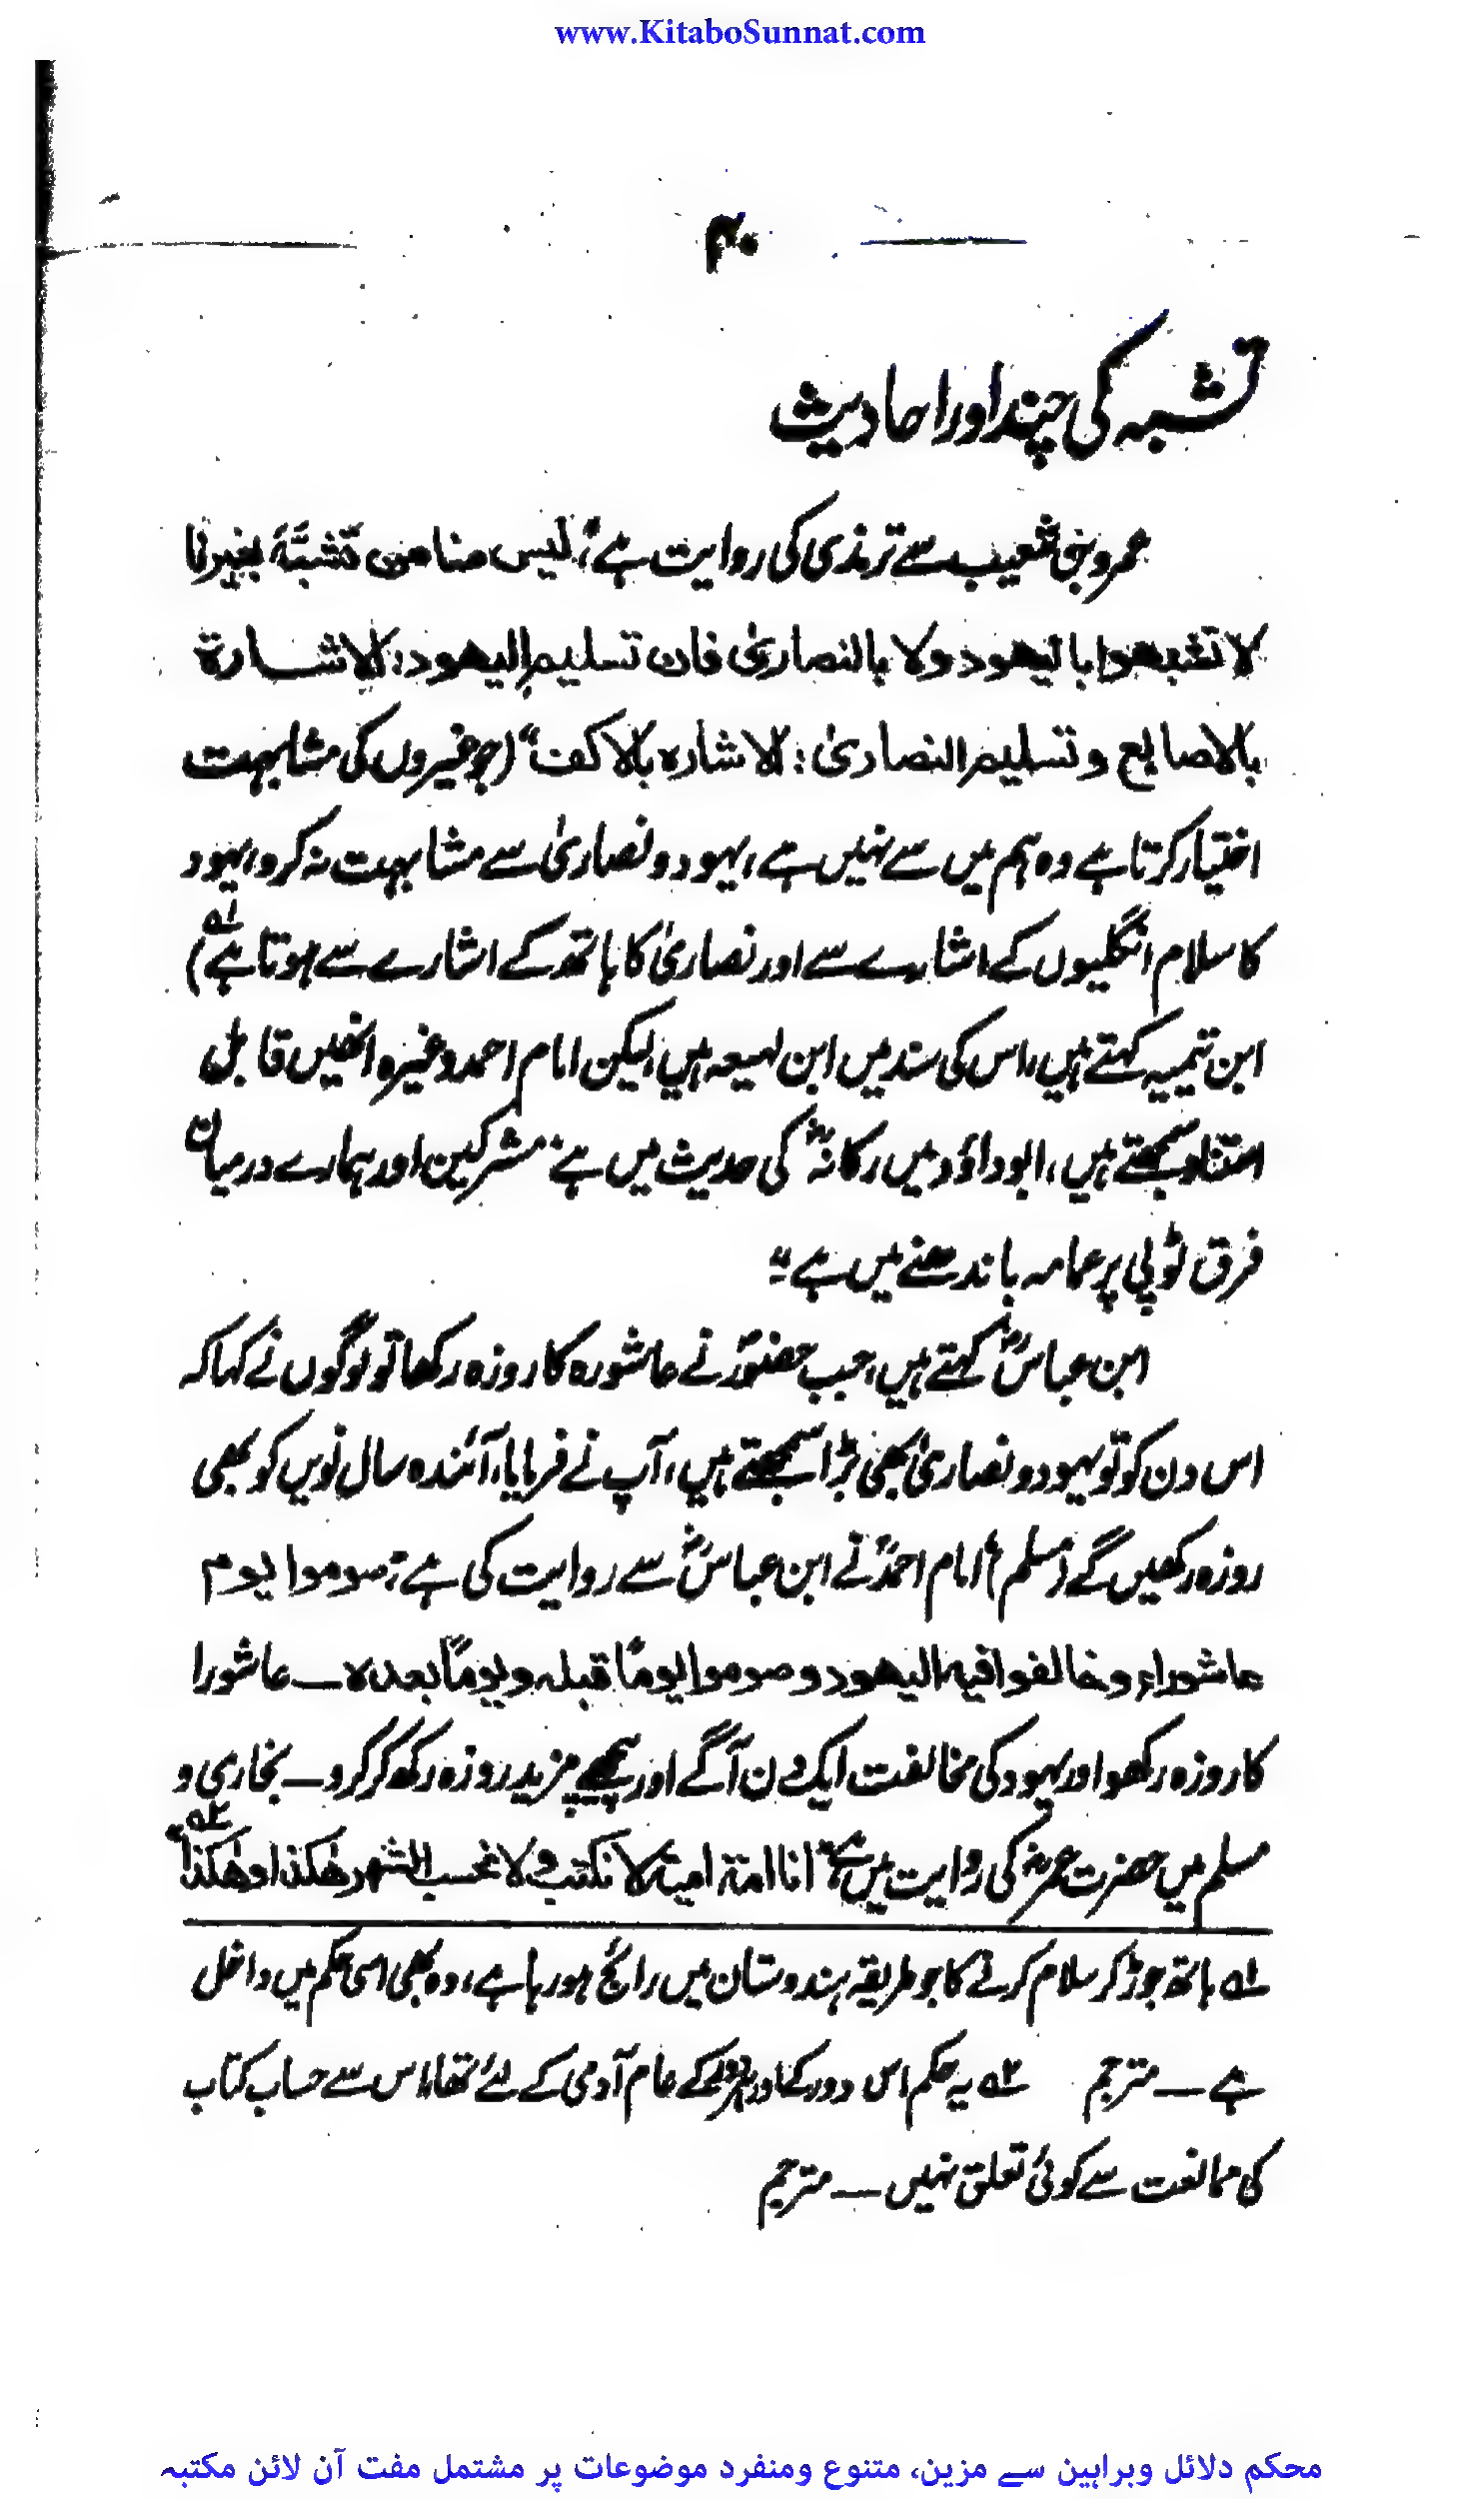 www.KitaboSunnat.com
۴۰
تشبہ کی چند اور احادیث
عمرو بن شعیب سے ترمذی کی روایت ہے: "لیس منا من تشبّهَ بغیرنا
لا تشبهوا بالیهود ولا بالنصاریٰ فان تسلیم الیهود: الاشارة
بالاصابع وتسلیم النصاریٰ: الاشارہ بالاکف" (جو غیروں کی مشابہت
اختیار کرتا ہے وہ ہم میں سے نہیں ہے، یہود و نصاریٰ سے مشابہت نہ کرو، یہود
کا سلام انگلیوں کے اشارے سے اور نصاریٰ کا ہاتھ کے اشارے سے ہوتا ہے)؂۱
ابن تیمیہ کہتے ہیں، اس کی سند میں ابن لہیعہ ہیں، لیکن امام احمد وغیرہ انھیں قابل
استناد سمجھتے ہیں، ابوداؤد میں رکانہؓ کی حدیث میں ہے "مشرکین اور ہمارے درمیان
فرق ٹوپی پر عمامہ باندھنے میں ہے"
ابن عباسؓ کہتے ہیں، جب حضورؐ نے عاشورہ کا روزہ رکھا تو لوگوں نے کہا کہ
اس دن کو تو یہود و نصاریٰ بھی بڑا سمجھتے ہیں، آپ نے فرمایا، آئندہ سال نویں کو بھی
روزہ رکھیں گے (مسلم) امام احمدؒ نے ابن عباسؓ سے روایت کی ہے: صوموا یوم
عاشوراء وخالفوا فیہ الیهود وصوموا یومًا قبلہ ویومًا بعدہ ـــ عاشورا
کا روزہ رکھو اور یہود کی مخالفت ایک دن آگے اور پیچھے مزید روزہ رکھ کر کرو ـــ بخاری و
مسلم میں حضرت عمرؓ کی روایت میں ہے "انا امة امیة لا نکتب ولا نحسب الشهر هٰکذا وهٰکذا"؂۲
؂۱ ہاتھ جوڑ کر سلام کرنے کا جو طریقہ ہندوستان میں رائج ہو رہا ہے، وہ بھی اسی حکم میں داخل
ہے ـــ مترجم ؂۲ یہ حکم اس دور کے اور ہر دور کے عام آدمی کے لئے تھا، اس سے حساب کتاب
کا ممانعت سے کوئی تعلق نہیں ـــ مترجم
محکم دلائل وبراہین سے مزین، متنوع ومنفرد موضوعات پر مشتمل مفت آن لائن مکتبہ